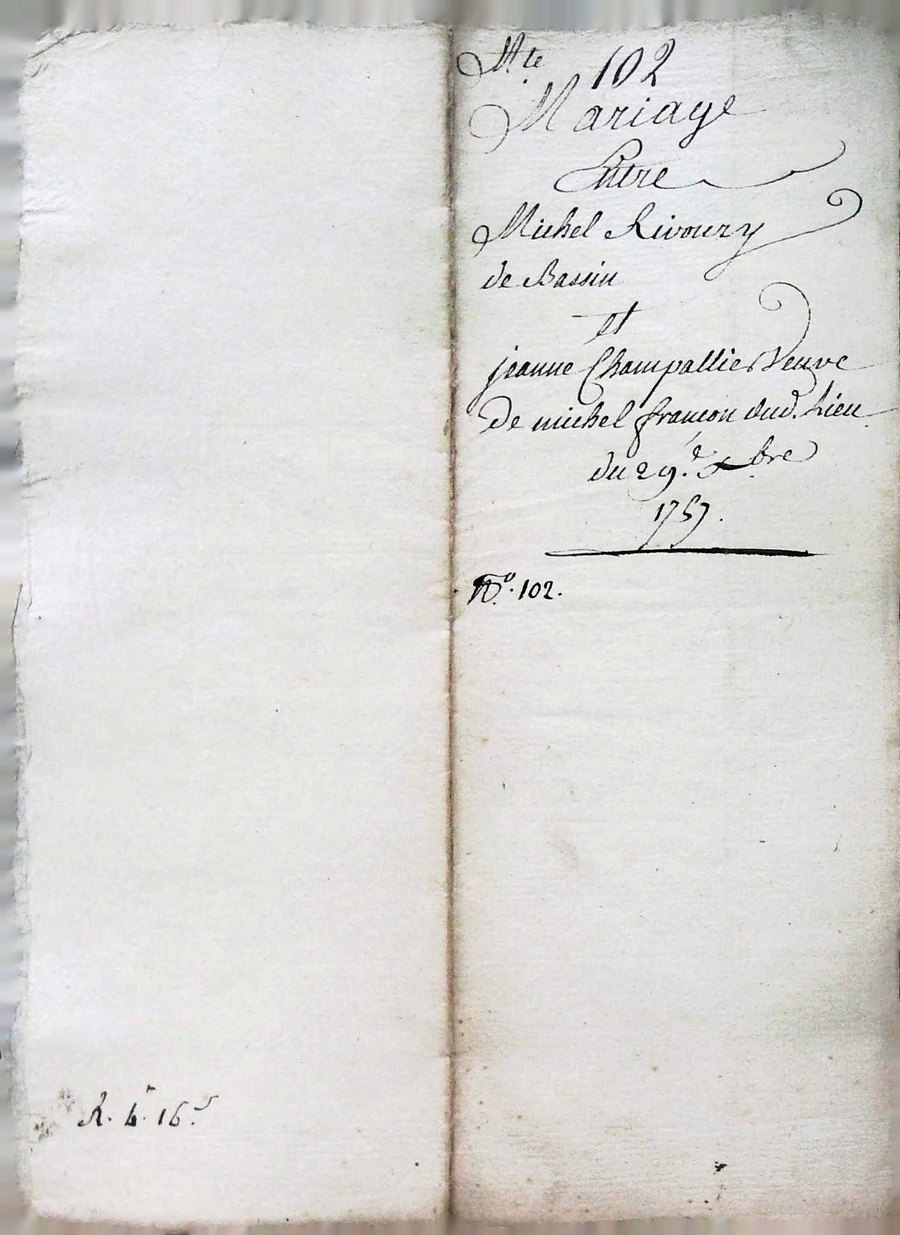 Mte 102
Mariage
Entre
Michel Rivoury
de Bassin
et
jeanne Champallier Veuve
de michel françon dud. Lieu
du 29.e xbre
1757.
No. 102.
R. 4. 16.s